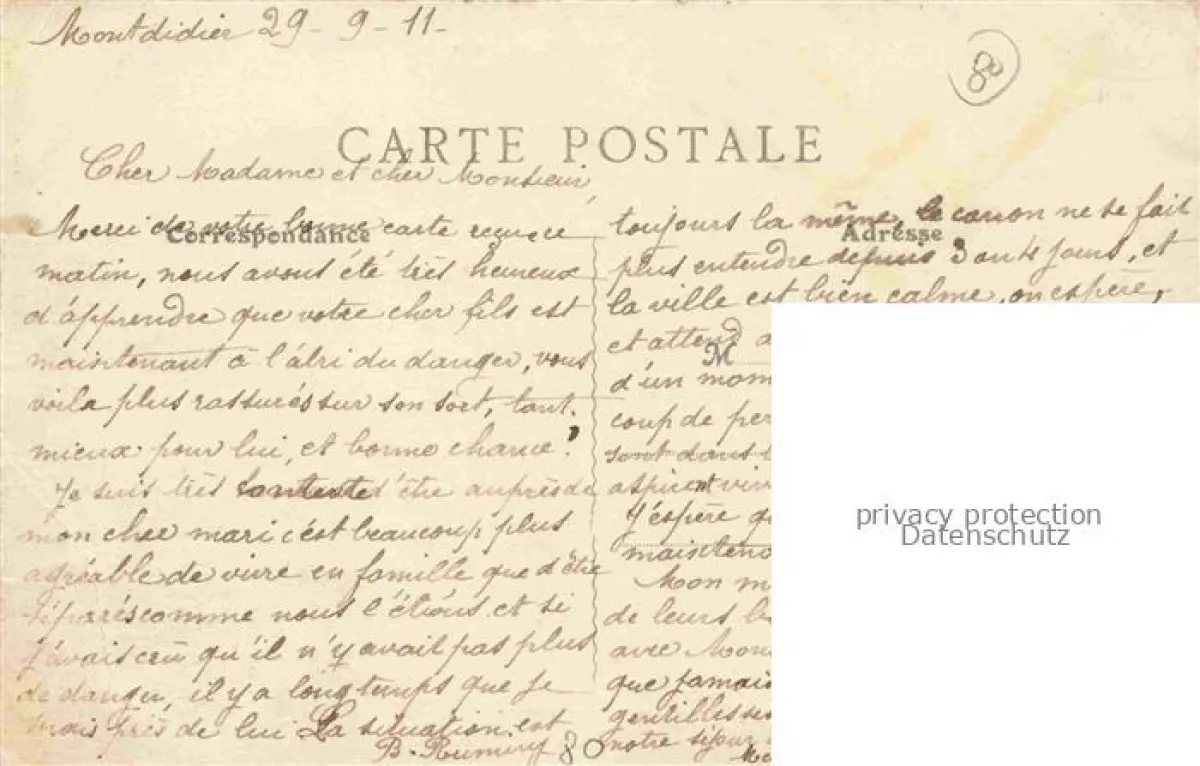 Montdidier 29-9-11-
80
CARTE POSTALE
Cher Madame et cher Monsieur,
Correspondance
Merci de votre bonne carte reçu ce
matin, nous avons été très heureux
d'apprendre que votre cher fils est
maintenant à l'abri du danger, vous
voila plus rassurés sur son sort, tant
mieux pour lui, et bonne chance!
Je suis très contente d'être auprès de
mon cher mari c'est beaucoup plus
agréable de vivre en famille que d'être
séparés comme nous l'étions et si
j'avais cru qu'il n'y avait pas plus
de danger, il y a longtemps que je
serais près de lui La situation est
Adresse
toujours la même, le canon ne se fait
plus entendre depuis 3 ou 4 jours, et
la ville est bien calme, on espère,
et attend
M
d'un mom
coup de per
sont dans
aspirent
J'espère
maintenant
Mon m
de leurs
avec Mon
que jamais
gentillesses
notre séjour
B. 80
privacy protection
Datenschutz